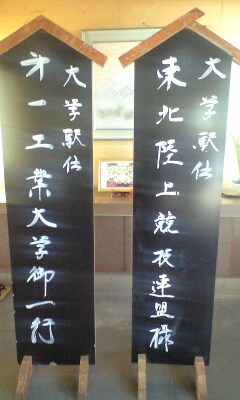 大学駅伝
東北陸上競技連盟様
大学駅伝
第一工業大学御一行